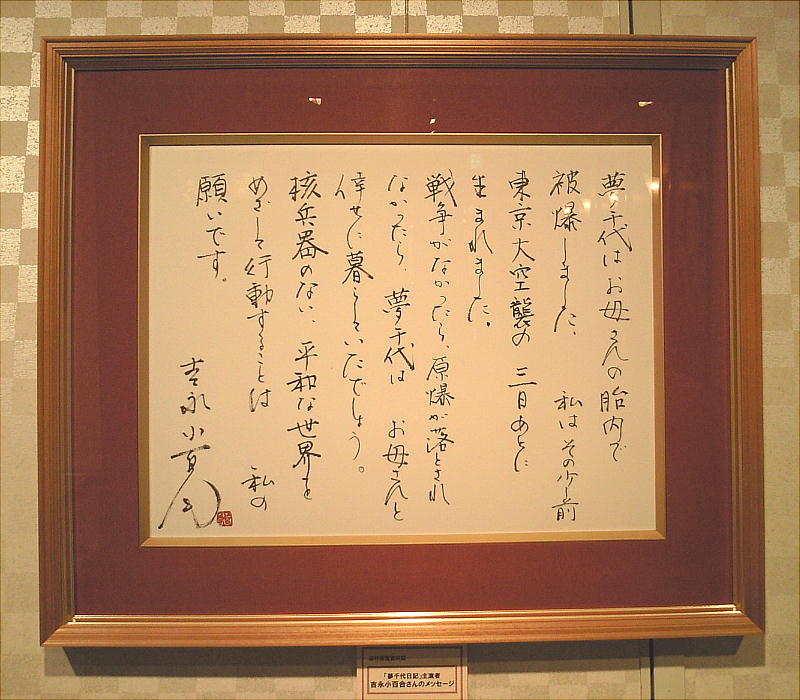 夢千代はお母さんの胎内で
被爆しました。私はその少し前
東京大空襲の三日あとに
生まれました。
戦争がなかったら、原爆が落とされ
なかったら、夢千代はお母さんと
倖せに暮らしていたでしょう。
核兵器のない、平和な世界を
めざして行動することは私の
願いです。
吉永小百合
「夢千代日記」主演者
吉永小百合さんのメッセージ